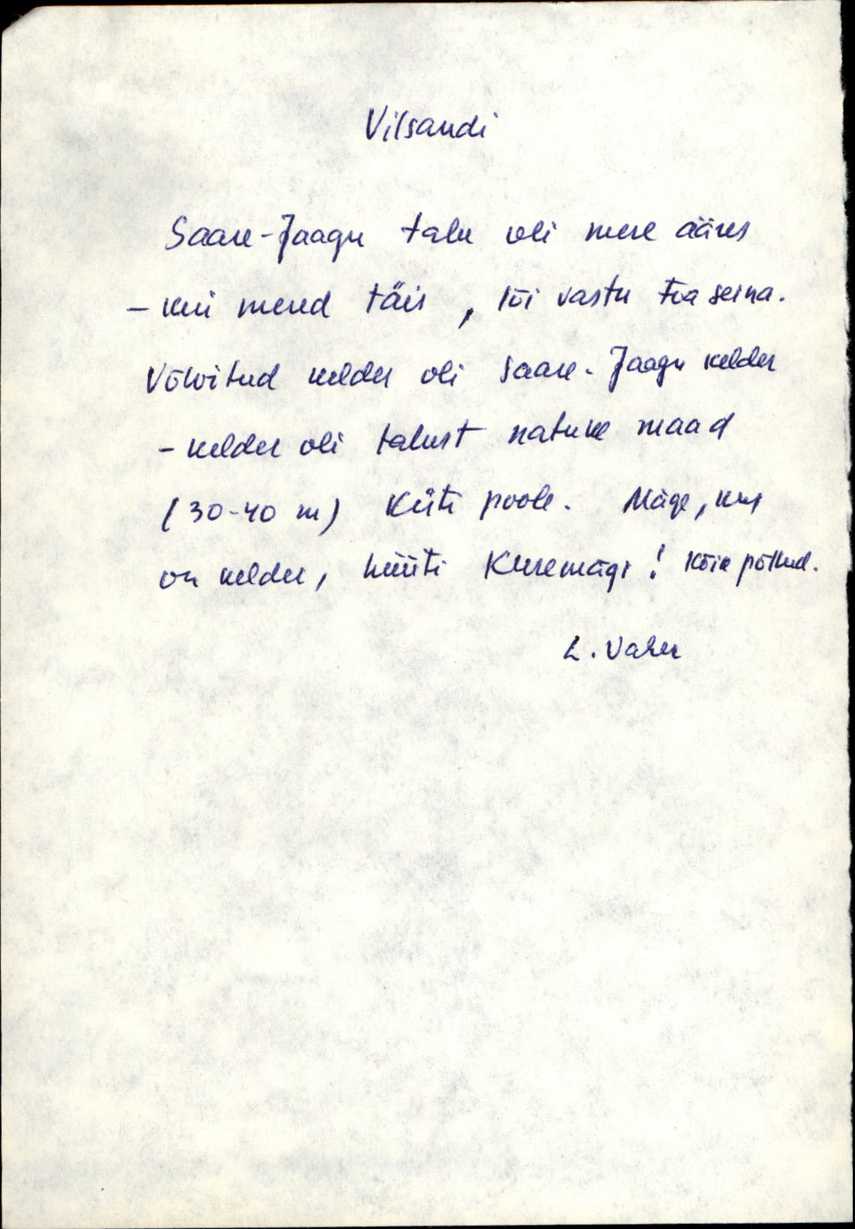 Vilsandi
Saare-Jaagu talu oli mere ääres
- kui mered täis, lõi vastu toa seina.
Võlvitud kelder oli Saare-Jaagu kelder
- kelder oli talust natuke maad
(30-40 m) Küti poole. Mäge, kus
on kelder, hüüti Kuremägi! Kõik põllud.
L. Vaher